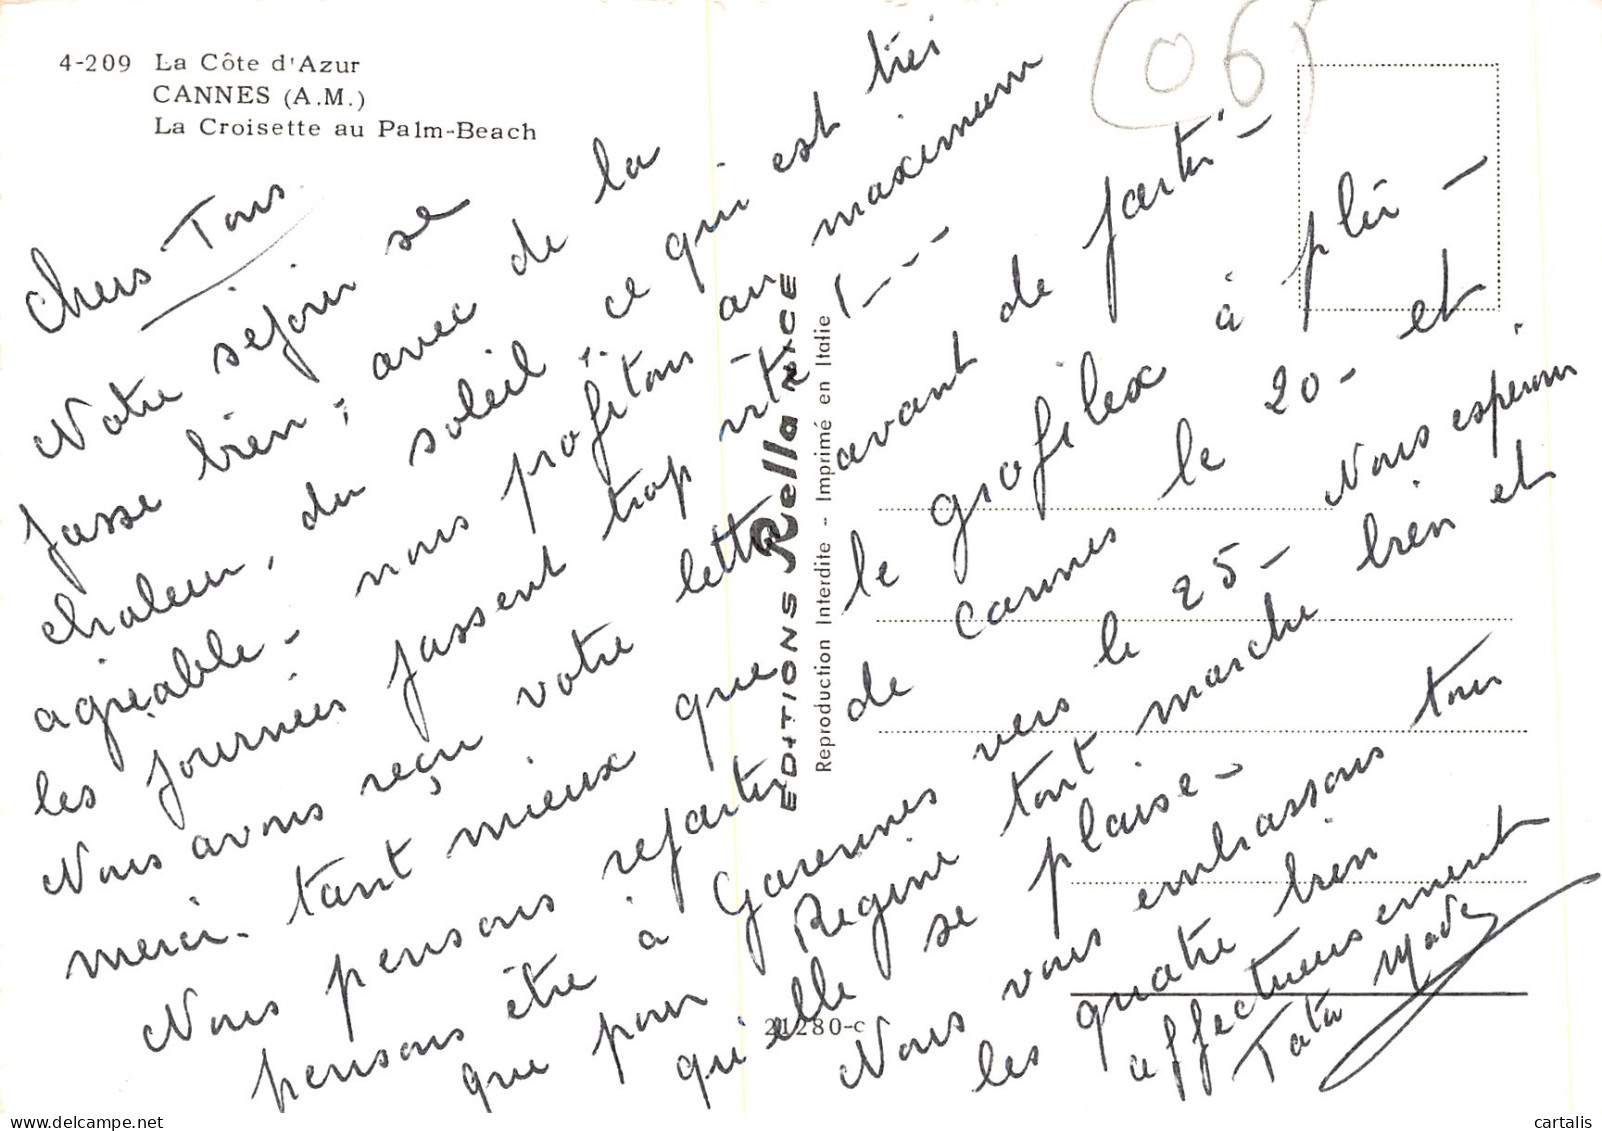 4-209 La Côte d'Azur
CANNES (A.M.)
La Croisette au Palm-Beach
(06)
EDITIONS Rella NICE
Reproduction Interdite - Imprimé en Italie
21280-c
Chers Tous
Notre séjour se
passe bien ; avec de la
chaleur, du soleil, ce qui est très
agréable - nous profitons au maximum
les journées passent trop vite ! - - -
Nous avons reçu votre lettre avant de partir -
merci - tant mieux que le profilex à plû -
Nous pensons repartir de Cannes le 20 - et
pensons être à Garennes vers le 25 - Nous espérons
que pour Régine tout marche bien et
qu'elle se plaise -
Nous vous embrassons tous
les quatre bien
affectueusement
Tata Made
cartalis